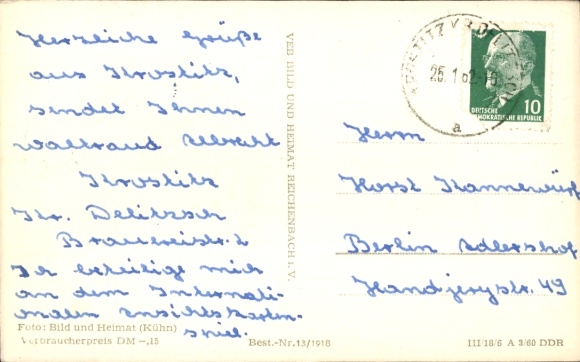 Herzliche Grüße
aus Krostitz,
sendet Ihnen
Waltraud Albrecht
Krostitz
Kr. Delitzsch
Brauereistr. 2
Ich beteilige mich
an dem Internati-
onalen Ansichtskarten-
spiel.
Foto: Bild und Heimat (Kühn)
Verbraucherpreis DM –,15
Best.-Nr. 13/1918
VEB BILD UND HEIMAT REICHENBACH i. V.
25.1.62
a
10
DEUTSCHE
DEMOKRATISCHE REPUBLIK
Herrn
Horst Kannewurf
Berlin Adlershof
Handjerystr. 49
III/18/6 A 3/60 DDR